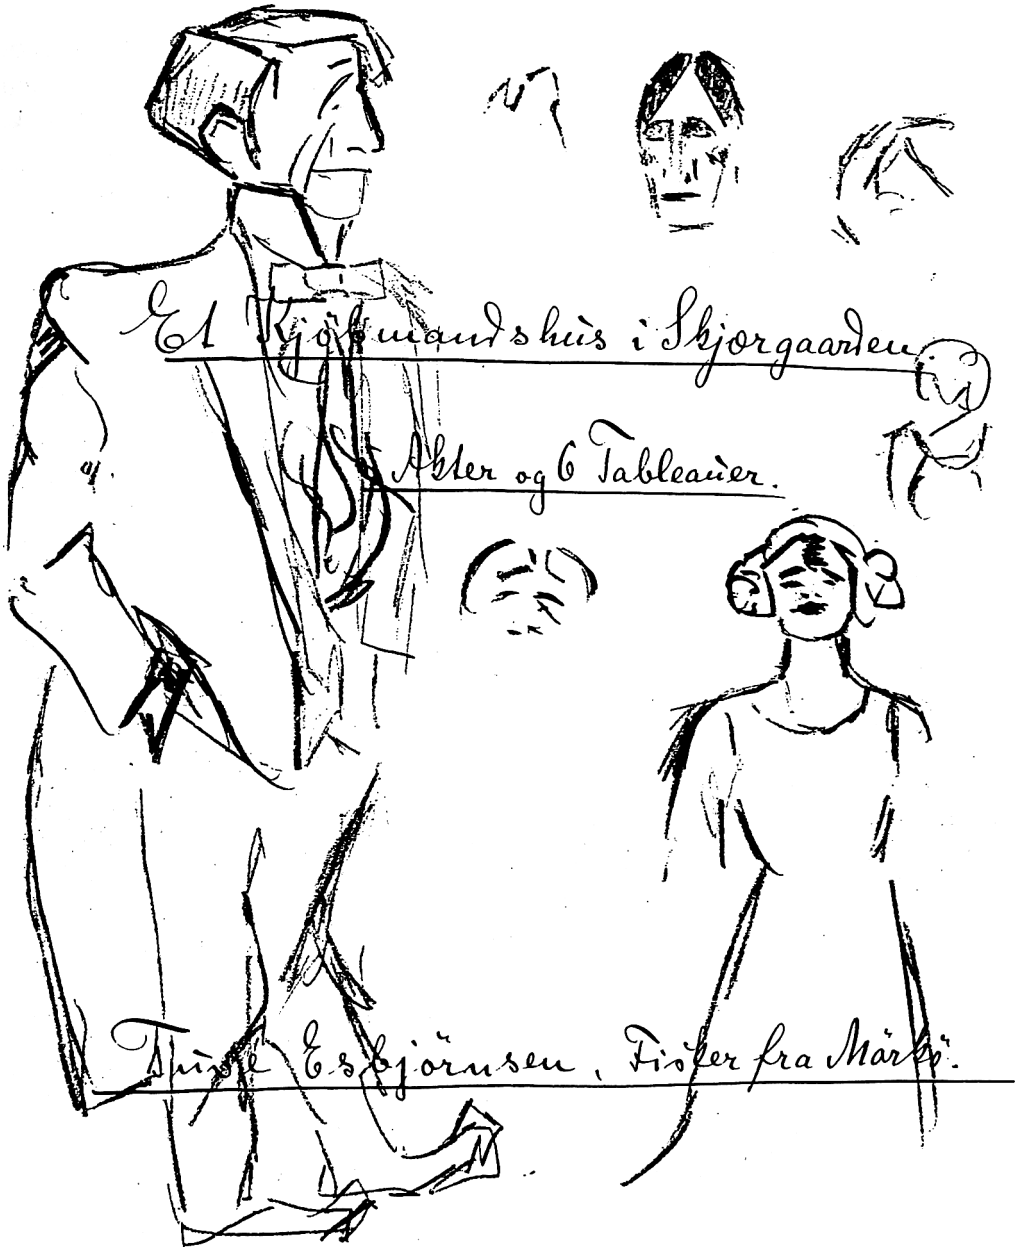 Et Kjøbmandshus i Skjærgaarden
Akter og 6 Tableauer.
Esbjörnsen, Fisker fra Markö.